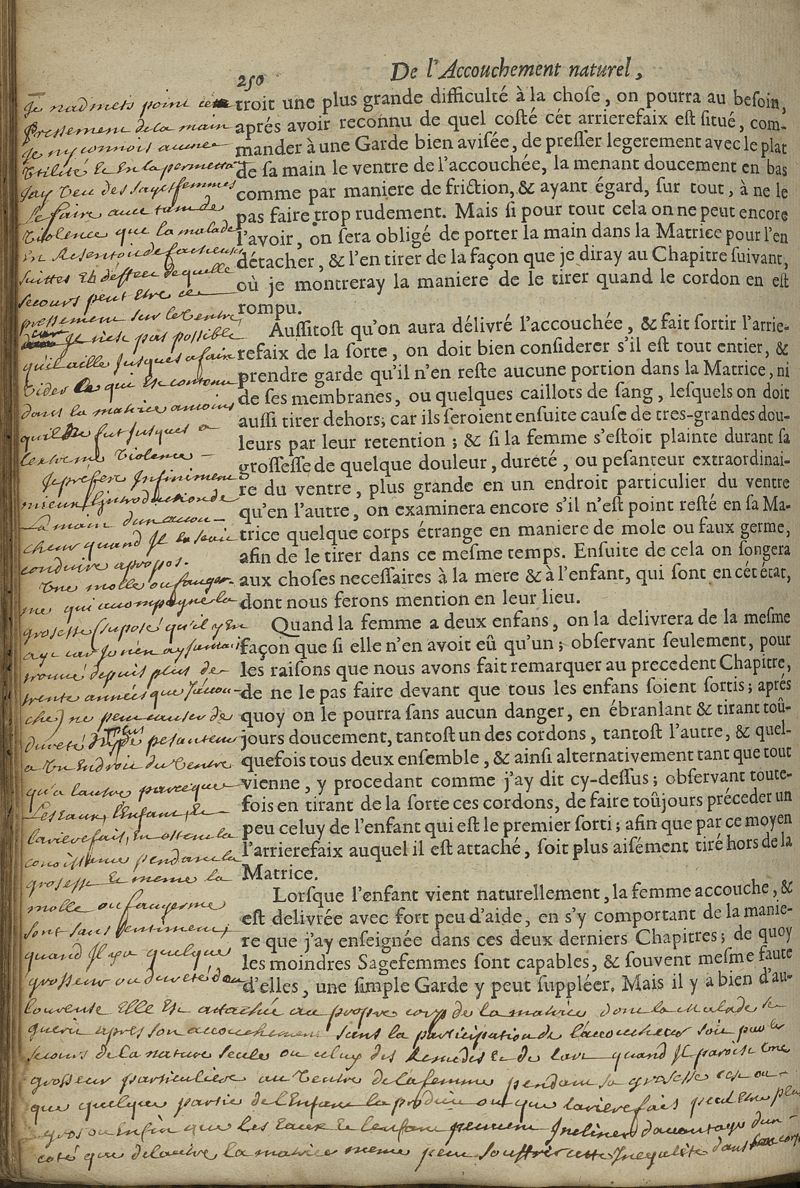 250
De l'Accouchement naturel,
troit une plus grande difficulté à la chose, on pourra au besoin,
aprés avoir reconnu de quel costé cét arrierefaix est situé, com-
mander à une Garde bien avisée, de presser legerement avec le plat
de sa main le ventre de l'accouchée, la menant doucement en bas
comme par maniere de friction, & ayant égard, sur tout, à ne le
pas faire trop rudement. Mais si pour tout cela on ne peut encore
l'avoir, on sera obligé de porter la main dans la Matrice pour l'en
détacher, & l'en tirer de la façon que je diray au Chapitre suivant,
où je montreray la maniere de le tirer quand le cordon en est
rompu.
Aussitost qu'on aura délivré l'accouchée, & fait sortir l'arrie-
refaix de la sorte, on doit bien considerer s'il est tout entier, &
prendre garde qu'il n'en reste aucune portion dans la Matrice, ni
de ses membranes, ou quelques caillots de sang, lesquels on doit
aussi tirer dehors; car ils seroient ensuite cause de tres-grandes dou-
leurs par leur retention; & si la femme s'estoit plainte durant sa
grossesse de quelque douleur, dureté, ou pesanteur extraordinai-
re du ventre, plus grande en un endroit particulier du ventre
qu'en l'autre, on examinera encore s'il n'est point resté en sa Ma-
trice quelque corps étrange en maniere de mole ou faux germe,
afin de le tirer dans ce mesme temps. Ensuite de cela on songera
aux choses necessaires à la mere & à l'enfant, qui sont en cét état,
dont nous ferons mention en leur lieu.
Quand la femme a deux enfans, on la delivrera de la mesme
façon que si elle n'en avoit eû qu'un; observant seulement, pour
les raisons que nous avons fait remarquer au precedent Chapitre,
de ne le pas faire devant que tous les enfans soient sortis; aprés
quoy on le pourra sans aucun danger, en ébranlant & tirant toû-
jours doucement, tantost un des cordons, tantost l'autre, & quel-
quefois tous deux ensemble, & ainsi alternativement tant que tout
vienne, y procedant comme j'ay dit cy-dessus; observant toute-
fois en tirant de la sorte ces cordons, de faire toûjours préceder un
peu celuy de l'enfant qui est le premier sorti; afin que par ce moyen
l'arrierefaix auquel il est attaché, soit plus aisément tiré hors de la
Matrice.
Lorsque l'enfant vient naturellement, la femme accouche, &
est delivrée avec fort peu d'aide, en s'y comportant de la manie-
re que j'ay enseignée dans ces deux derniers Chapitres; de quoy
les moindres Sagefemmes sont capables, & souvent mesme faute
d'elles, une simple Garde y peut suppléer. Mais il y a bien d'au-
Je nadmets point ce
pressement de la main
Je ny connois aucune
utilité
Jay veu des sagesfemmes
le faire avec tant de
violence que la malade
suittes
secours peut estre ce
pressement sur le ventre
Je nest pas possible
qu'il aille jusques a faire
vider ce qui est contenu
dans la matrice amoins
qu'il ne fut jusques a
lextreme violence
Je prefere Infiniment
mieux l'introduction de
la main dun accou-
cheur quand Il la scait
conduire apropos.
Une molle ou fauxger-
me qui accompagne la
grossesse supposé qu'il y en
trouvé depuis plus de
trente années que Jacou-
che) ne peut causer de
dureté pesanteur
a un Endroit du ventre
qu'a lautre parce que
Les eaux, l'enfant, &
larierefait, en ostent la
connoissance pendant la
grossesse & meme la
molle ou fauxgerme
sont sans sentiment
quand Il y a quelque
grosseur ou dureté
louvente Elle est attachée au propre corps de la matrice dont la malade
guerit apres son accouchement sans la participation de laccoucheur soit par le
secours de la nature seule ou celuy des Remedes & de lart quand Il paroist une
grosseur particuliere au ventre de la femme pendant sa grossesse cest ou
que quelque partie de l'Enfant la produit ou que larierefait peut estre plus
gros ou Enfin que les eaux & lenfant peuvent Incliner davantage dun
coté que delautre la matrice meme peut souffrir cette Inegalité dans son corps